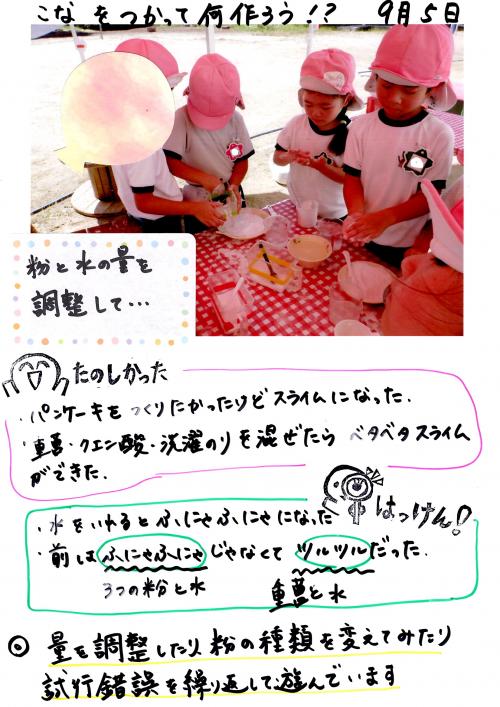 こな をつかって何作ろう!?　9月5日
粉と水の量を
調整して…
たのしかった
・パンケーキをつくりたかったけどスライムになった.
・重曹・クエン酸・洗濯のりを混ぜたら ベタベタスライム
ができた.
はっけん!
・水をいれるとふにゃふにゃになった
・前はふにゃふにゃじゃなくてツルツルだった.
3つの粉と水　重曹と水
◎ 量を調整したり、粉の種類を変えてみたり
試行錯誤を繰り返して遊んでいます